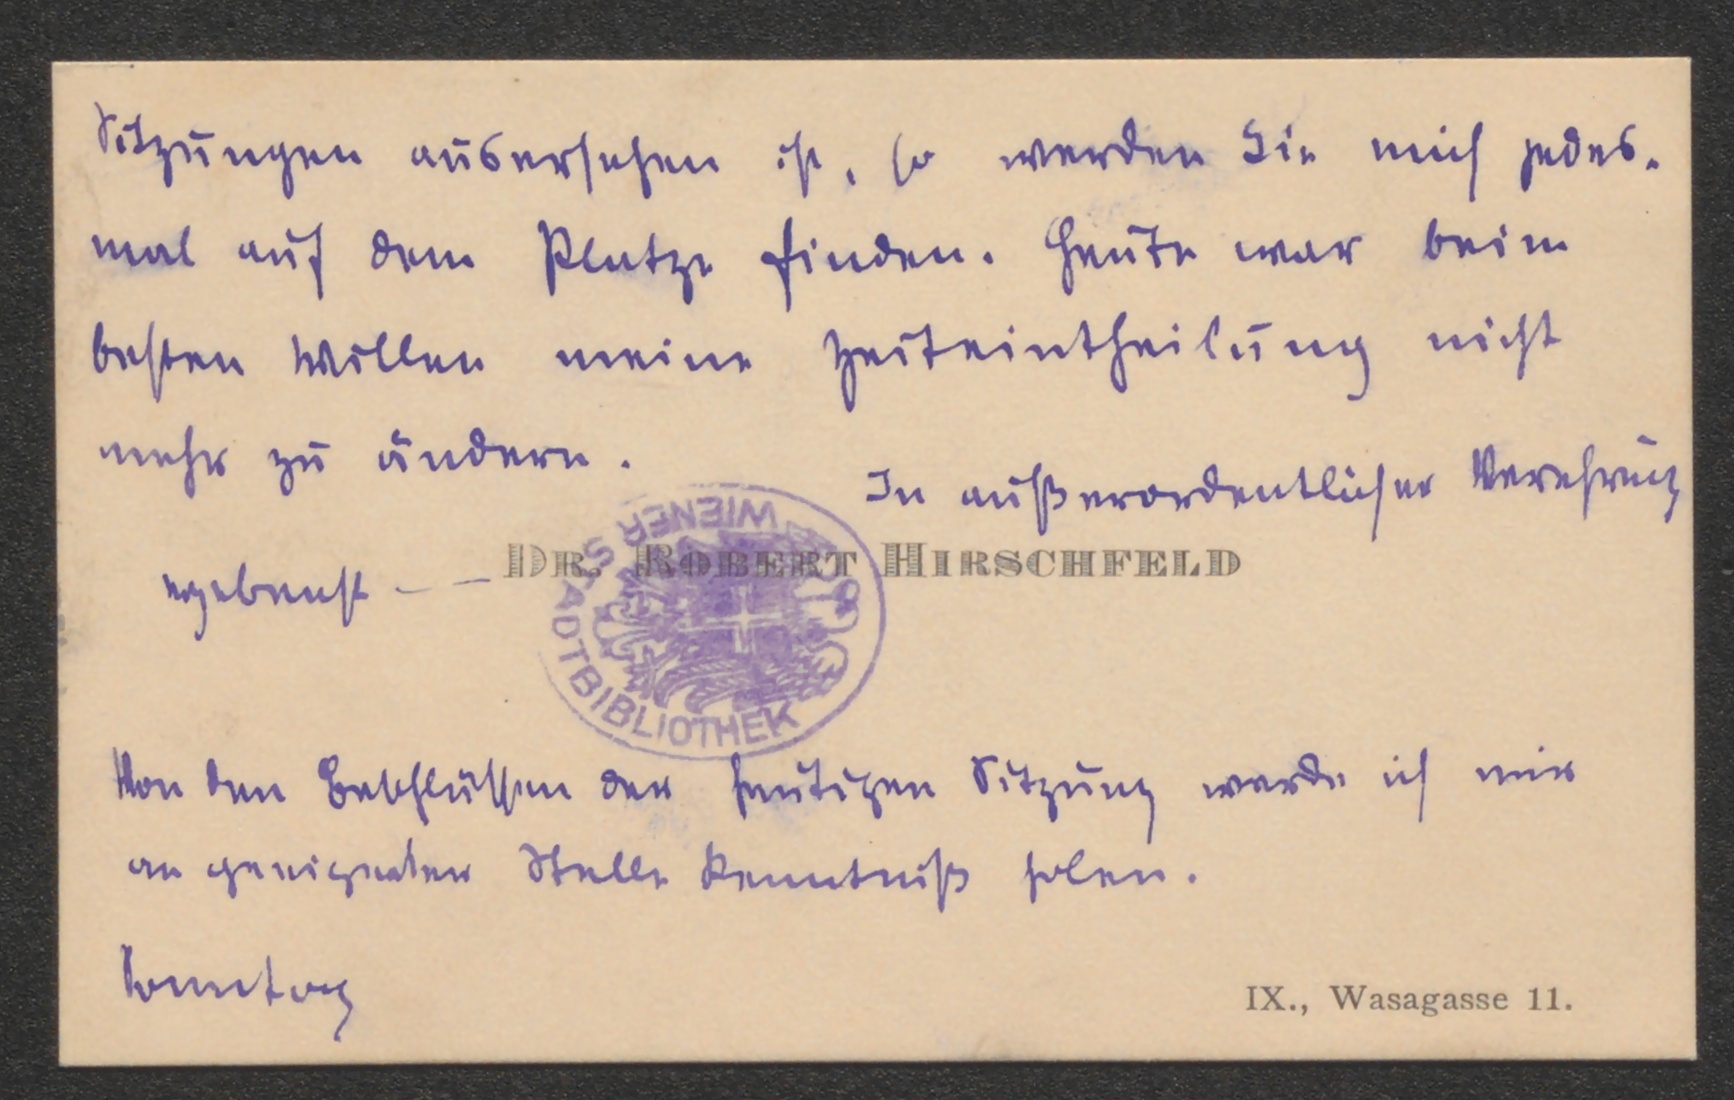 Sitzungen ausersehen ist, so werden Sie mich jedes-
mal auf dem Platze finden. Heute war beim
besten Willen meine Zeiteintheilung nicht
mehr zu ändern.
In außerordentlicher Verehrung
ergebenst — — DR. ROBERT HIRSCHFELD
WIENER STADTBIBLIOTHEK
Von den Beschlüssen der heutigen Sitzung werde ich mir
an geeigneter Stelle Kenntniß holen.
Sonntag
IX., Wasagasse 11.